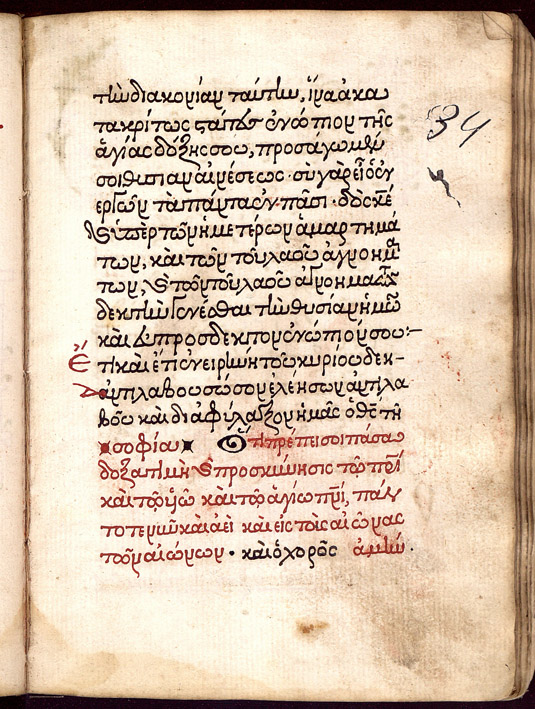 τὴν διακονίαν ταύτην, ἵνα ἀκα
τακρίτως στάντες ἐνώπιον τῆς
ἁγίας δόξης σου, προσάγωμέν
σοι θυσίαν αἰνέσεως· σὺ γὰρ εἶ ὁ ἐν
εργῶν τὰ πάντα ἐν πᾶσι· δὸς κ(ύρι)ε
καὶ ὑπὲρ τῶν ἡμετέρων ἁμαρτημά
των, καὶ τῶν τοῦ λαοῦ ἀγνοημά
των,
δεκτὴν γενέσθαι τὴν θυσίαν ἡμῶν
καὶ εὐπρόσδεκτον ἐνώπιόν σου:-
Ἔ
τι καὶ ἔτι ἐν εἰρήνη τοῦ κυρίου δεη-
ἀντιλαβοῦ σῶσον ἐλέησον ἀντιλα
βοῦ καὶ διαφύλαξον ἡμᾶς ὁ θε(ὸς) τῇ
σοφία Ὅτι πρέπει σοι πᾶσα
δόξα τιμὴ καὶ προσκύνησις τῷ π(ατ)ρὶ
καὶ τῷ υἱῷ καὶ τῷ ἁγίῳ πν(εύματ)ι, πάν
τοτε νῦν καὶ ἀεὶ καὶ εἰς τοὺς αἰῶνας
τῶν αἰώνων· καὶ ὁ χορὸς ἀμήν.
34